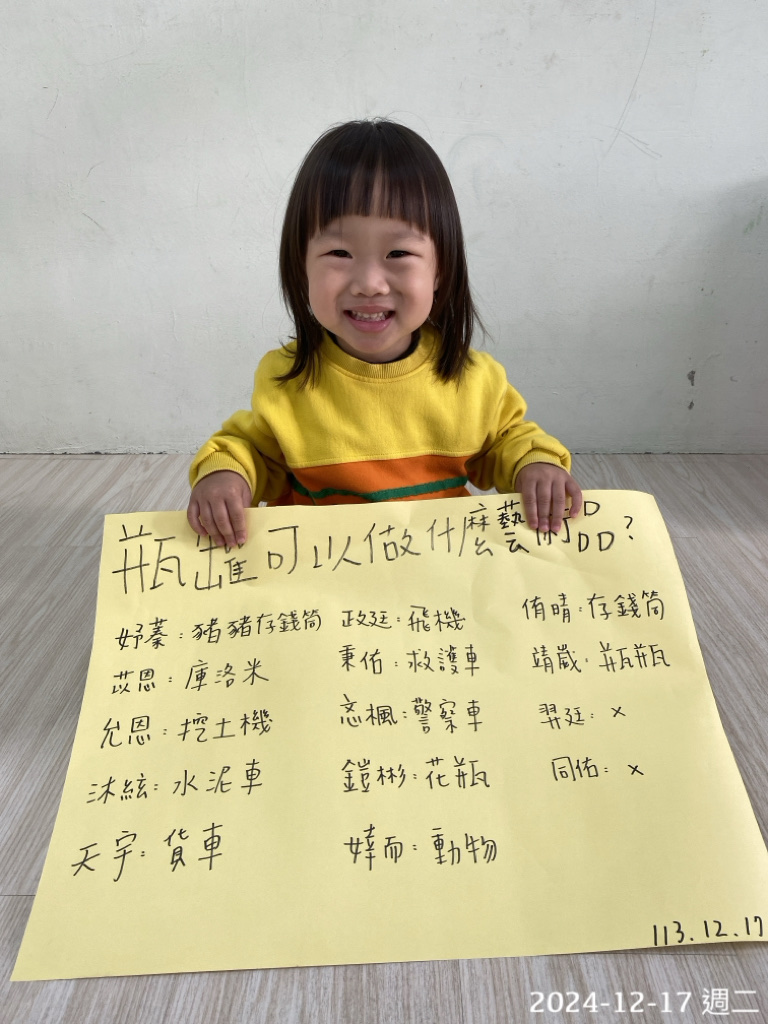 瓶罐可以做什麼藝術品?
妤蓁:豬豬存錢筒
苡恩:庫洛米
允恩:挖土機
沐絃:水泥車
天宇:貨車
政廷:飛機
秉佑:救護車
恋楓:警察車
鎧彬:花瓶
婞而:動物
侑晴:存錢筒
靖崴:瓶瓶
羿廷:×
同佑:×
113.12.17
2024-12-17 週二